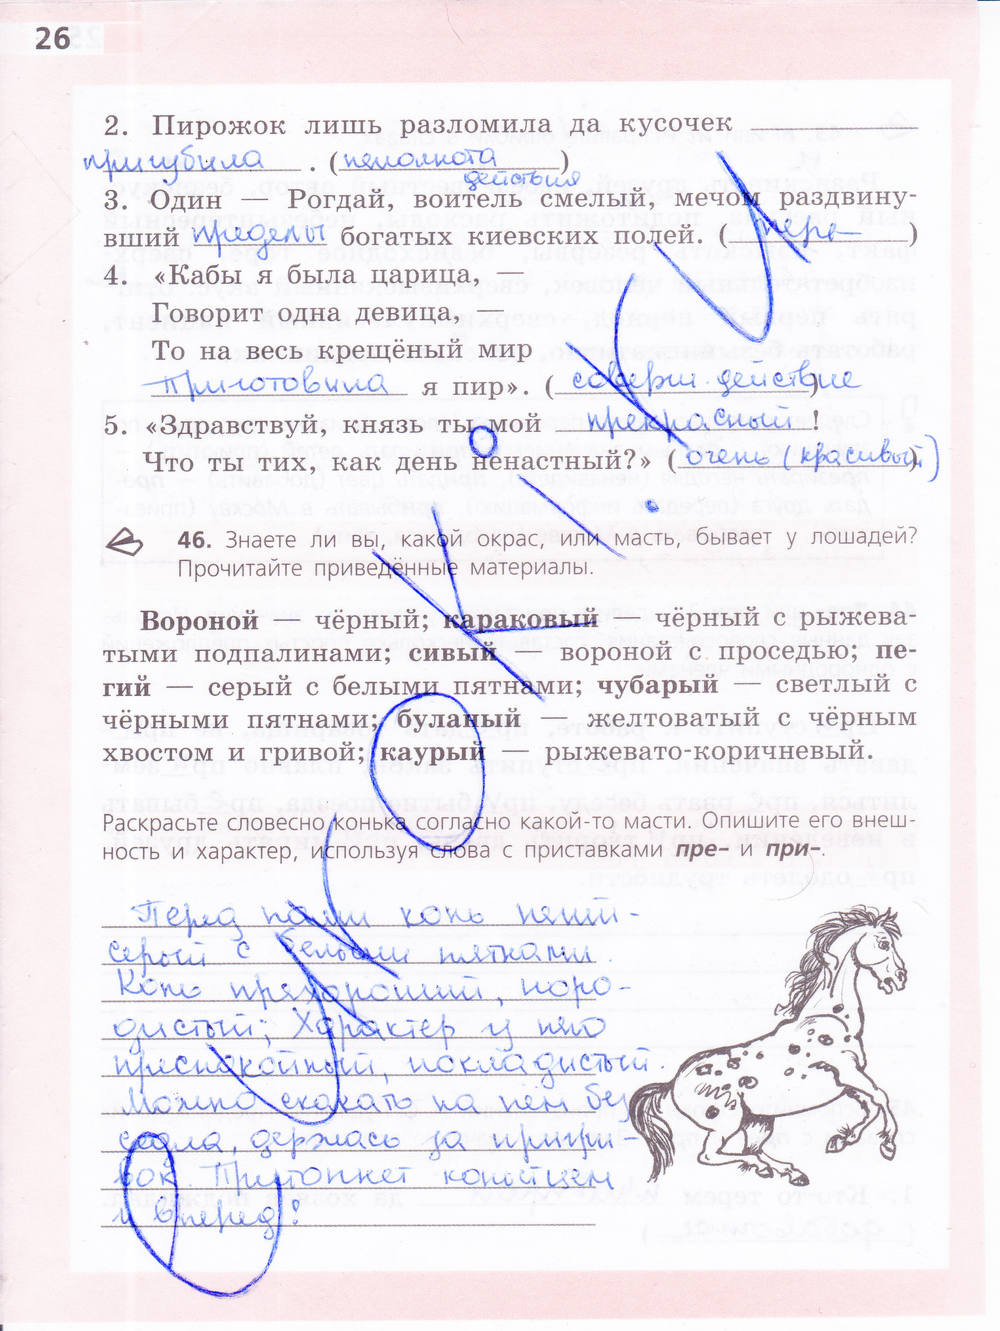 26
2. Пирожок лишь разломила да кусочек
пригубила. (неполнота
действия)
3. Один — Рогдай, воитель смелый, мечом раздвину-
вший пределы богатых киевских полей. (пере-)
4. «Кабы я была царица, —
Говорит одна девица, —
То на весь крещёный мир
Приготовила я пир». (соверш. действие)
5. «Здравствуй, князь ты мой прекрасный!
Что ты тих, как день ненастный?» (очень (красивый))
46. Знаете ли вы, какой окрас, или масть, бывает у лошадей?
Прочитайте приведённые материалы.
Вороной — чёрный; караковый — чёрный с рыжева-
тыми подпалинами; сивый — вороной с проседью; пе-
гий — серый с белыми пятнами; чубарый — светлый с
чёрными пятнами; буланый — желтоватый с чёрным
хвостом и гривой; каурый — рыжевато-коричневый.
Раскрасьте словесно конька согласно какой-то масти. Опишите его внеш-
ность и характер, используя слова с приставками пре- и при-.
Перед нами конь пегий -
серый с белыми пятнами.
Конь прехороший, поро-
дистый; Характер у него
преспокойный, покладистый.
Можно скакать на нём без
седла, держась за пригри
вок. Притопнет копытцем
и вперед!